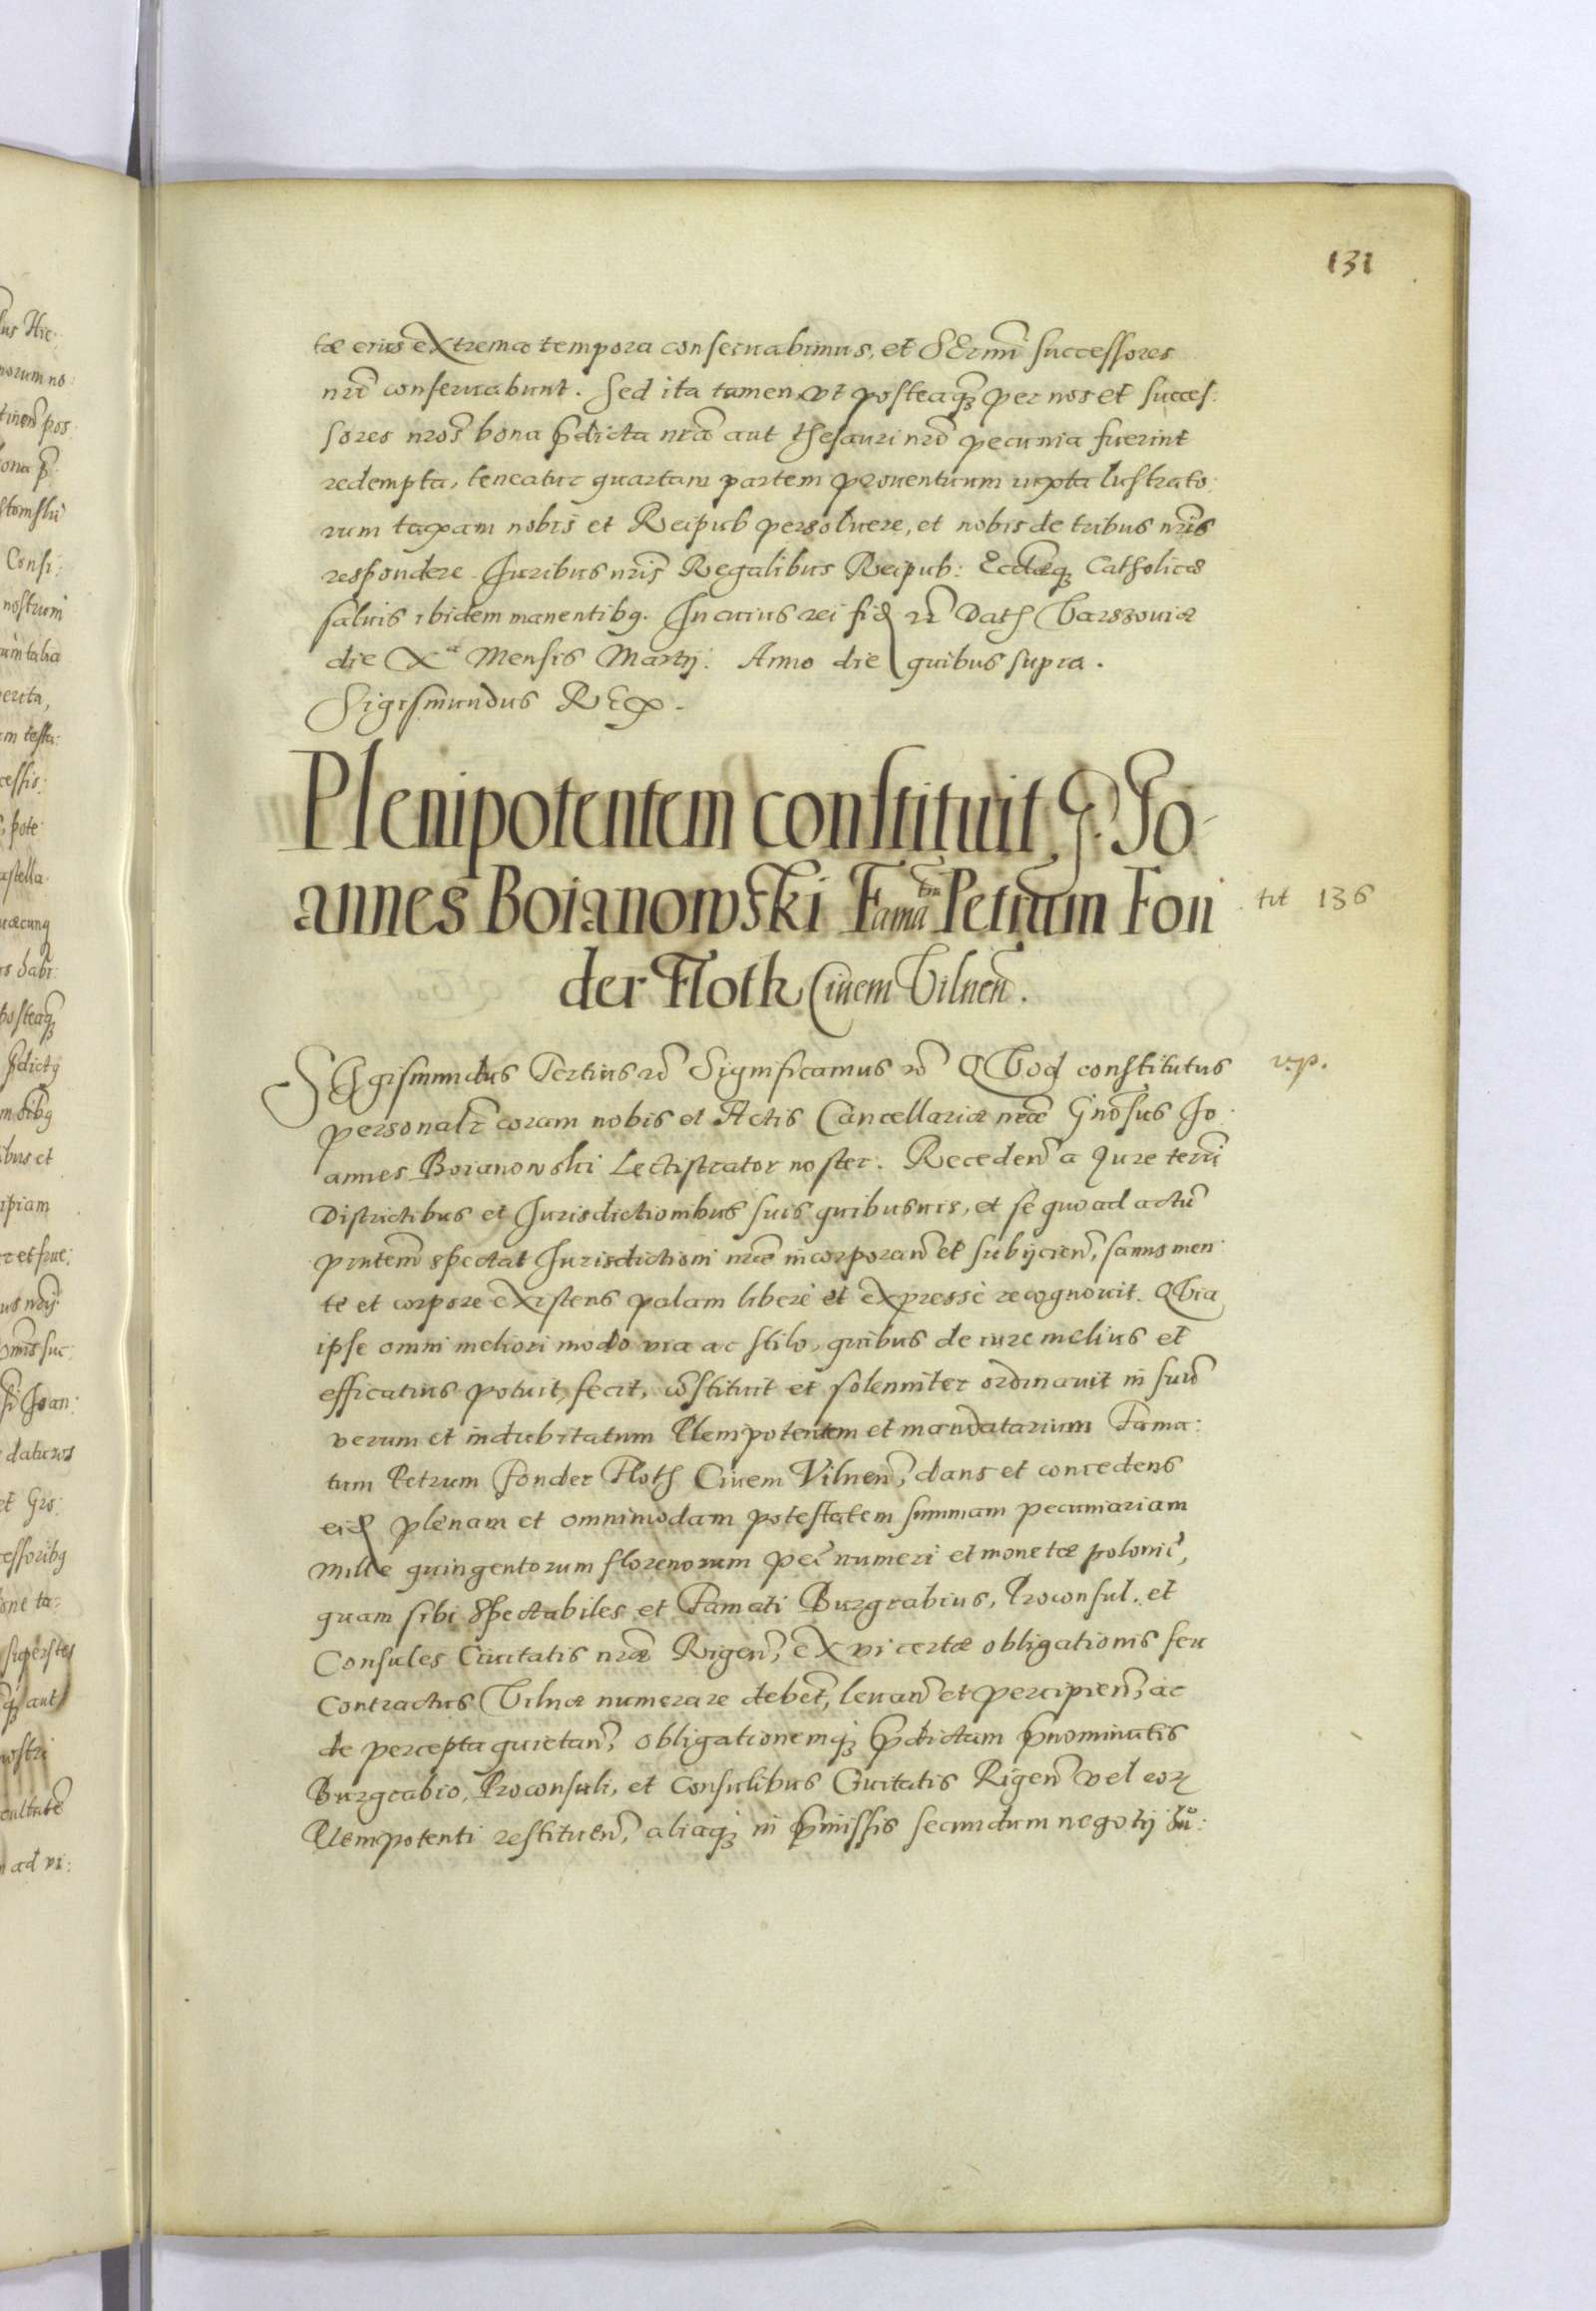 131
tæ eius extrema tempora conseruabimus, et SErmi successores
nrī conseruabunt. Sed ita tamen, vt posteaq3 per nos et succes:
sores nros bona p̄dicta nrā aut thesauri nrī pecunia fuerint
redempta, teneatur quartam partem prouentuum iuxta lustrato:
rum taxam nobis et Reipub persoluere, et nobis de tribus nris
respondere. Iuribus nris Regalibus Reipub: Ecclæq3 Catholicæ
saluis ibidem manentibq. In cuius rei fid rē Dat Varssouiæ
die Xa Mensis Martij: Anno die quibus supra.
Sigismundus REx.
Plenipotentem constituit G. Jo-
annes Boianowski Famatm Petrum Fon
der Floth Ciuem Vilneñ.
tit 136
SIgismundus Tertius rē Significamus rē QVod constitutus
v.p.
personalr coram nobis et Actis Cancellariæ nræ Gnosus Jo:
annes Boianowski Lectistrator noster. Recedeñ a Jure terri
Districtibus et Jurisdictionibus suis quibusuis, et se quo ad actū
pnteḿ spectat Jurisdictioni nræ incorporañ et subijcieñ, sanus men:
te et corpore existens palam liberè et expressè recognouit. QVia
ipse omni meliori modo via ac stilo, quibus de iure melius et
efficatius potuit, fecit, cōstituit et solenniter ordinauit in suū
verum et indubitatum Plenipotentem et mandatarium Fama:
tum Petrum Fonder Floth Ciuem Vilneñ, dans et concedens
eid plenam et omnimodam potestatem summam pecuniariam
mille quingentorum florenorum pec̄ numeri et monetæ polonic̄,
quam sibi Spectabiles et Famati Burgrabius, Proconsul. et
Consules Ciuitatis nræ Rigeñ, ex vi certæ obligationis seu
Contractus Vilnæ numerare debeñt, leuañ et percipieñ, ac
de percepta quietañ, obligationemq3 p̄dictam p̄nominatis
Burgrabio, Proconsuli, et Consulibus Ciuitatis Rigeñ vel eor
Plenipotenti restitueñ, aliaq3 in p̄missis secundum negotij